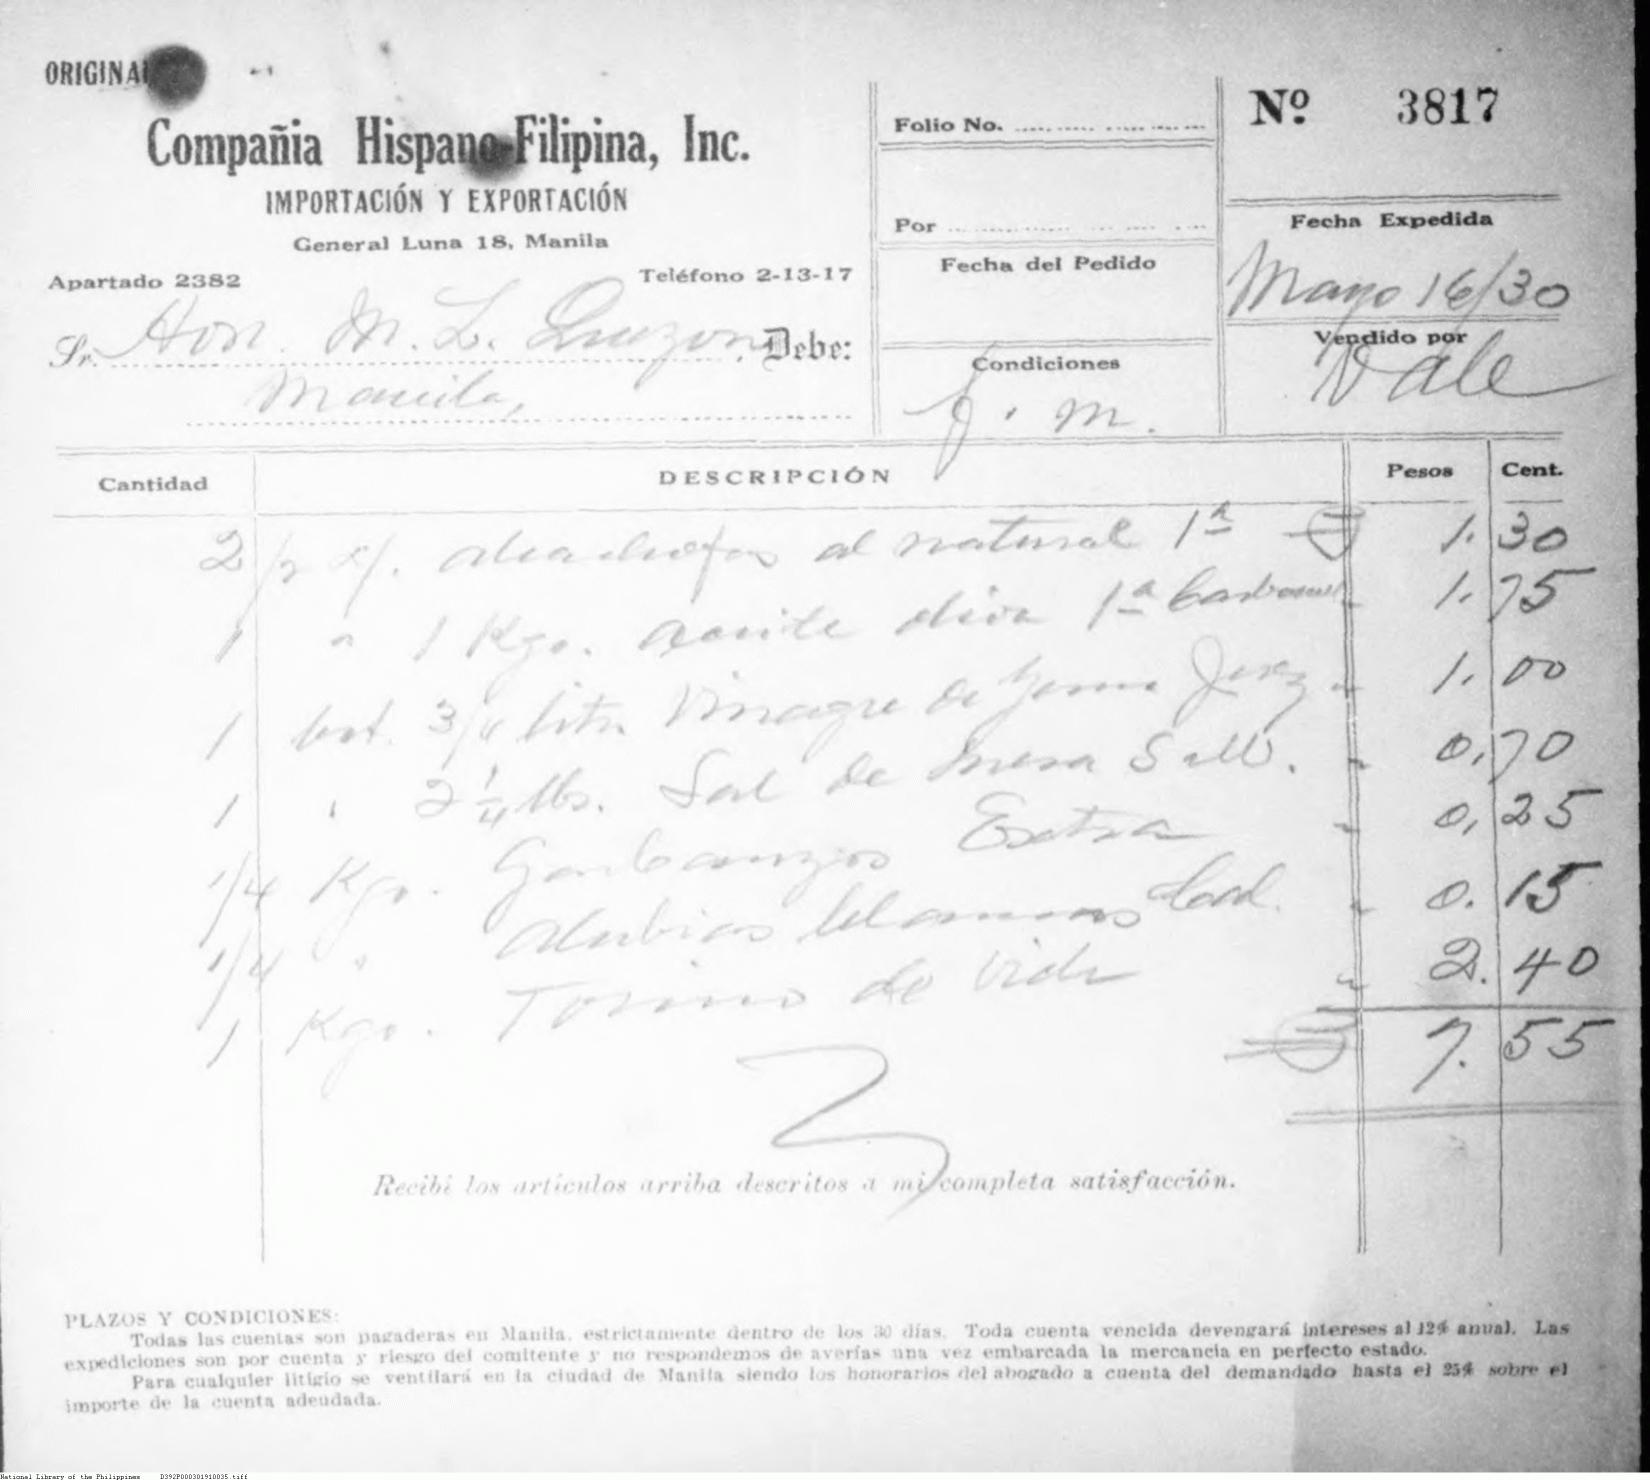 ORIGINAL
Compañia Hispano-Filipina, Inc.
IMPORTACIÓN Y EXPORTACIÓN
General Luna 18, Manila
Apartado 2382
Teléfono 2-13-17
Sr. Hon. M. L. Quezon, Debe:
Manila,
Folio No.
Por
Fecha del Pedido
Condiciones
f. m.
Nº 3817
Fecha Expedida
Mayo 16/30
Vendido por
Vale
Cantidad DESCRIPCIÓN Pesos Cent.
2 al natural 1ª 1. 30
1 " 1 Kgo. aceite oliva 1ª 1. 75
1 bot. 3/4 litr. Vinagre de Yema Jerez " 1. 00
1 " 2 1/4 lbs. Sal de mesa " 0. 70
1/4 Kgo. Garbanzos Extra " 0. 25
1/4 " Alubias blancas " 0. 15
1 Kgo. Tosino de " 2. 40
7. 55
Recibí los artículos arriba descritos a mi completa satisfacción.
PLAZOS Y CONDICIONES:
Todas las cuentas son pagaderas en Manila, estrictamente dentro de los 30 días. Toda cuenta vencida devengará intereses al 12% anual. Las
expediciones son por cuenta y riesgo del comitente y no respondemos de averías una vez embarcada la mercancía en perfecto estado.
Para cualquier litigio se ventilará en la ciudad de Manila siendo los honorarios del abogado a cuenta del demandado hasta el 25% sobre el
importe de la cuenta adeudada.
National Library of the Philippines D392P000301910035.tiff